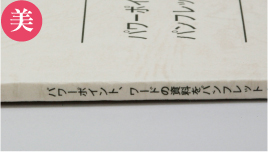 美
パワーポイ
パンフレッ
パワーポイント、ワードの資料をパンフレット